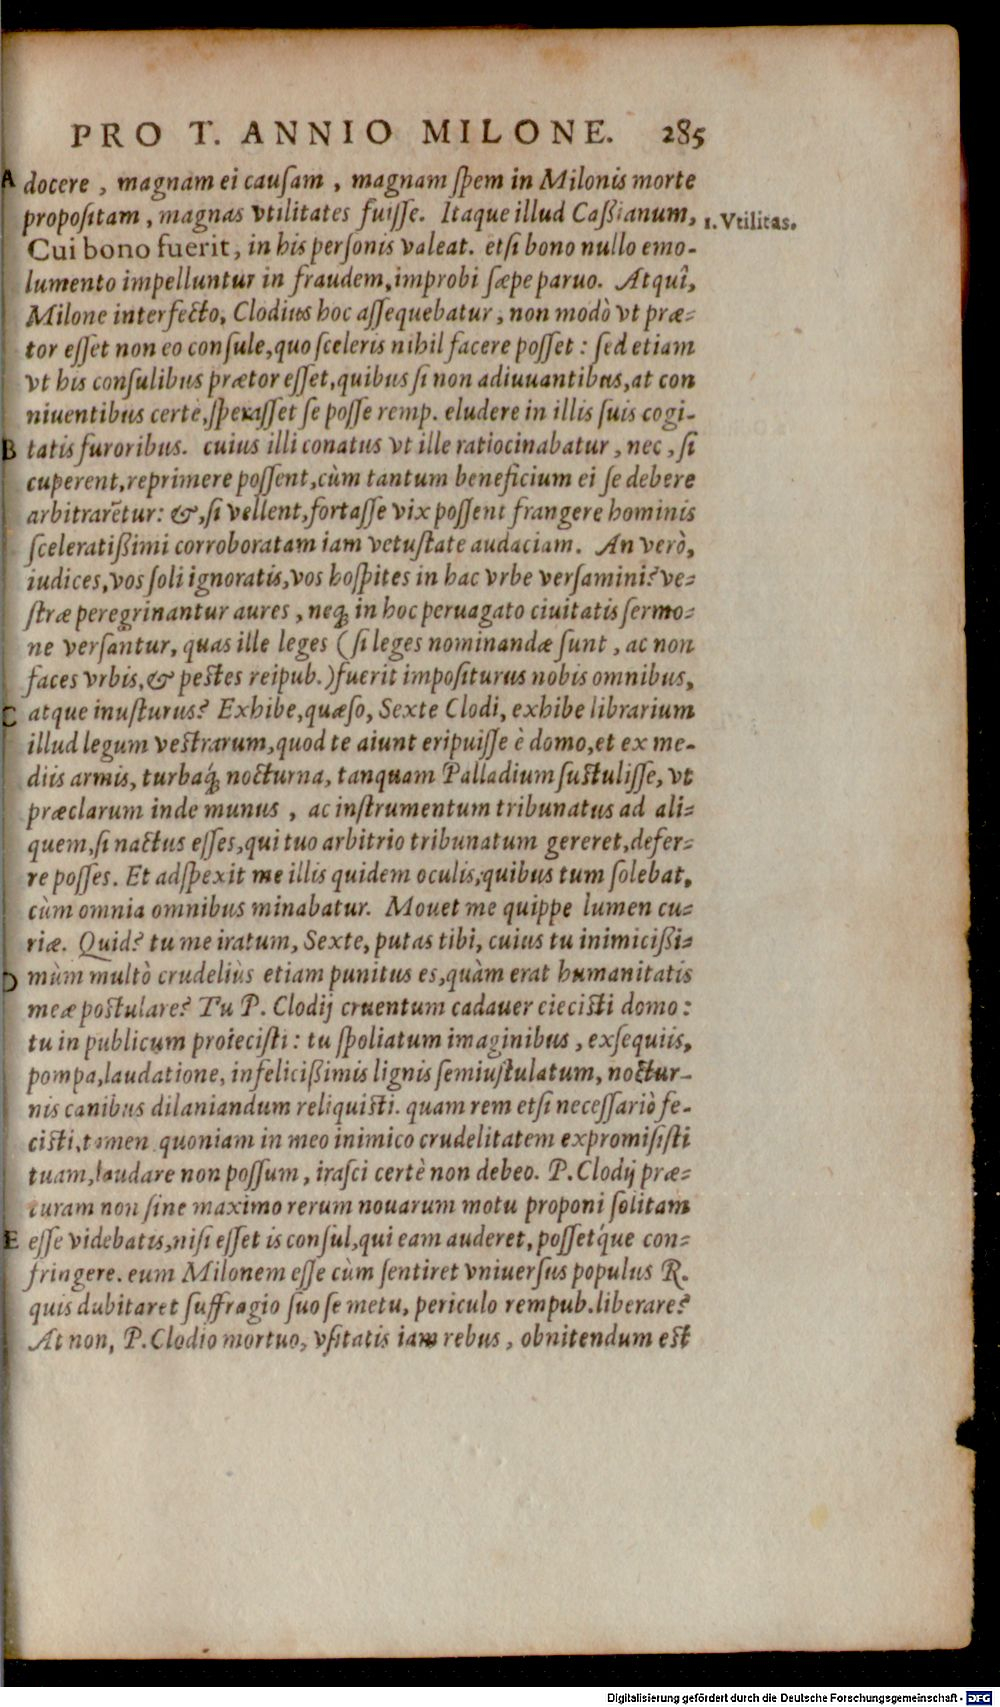 PRO T. ANNIO MILONE. 285
A docere, magnam ei causam, magnam spem in Milonis morte
propositam, magnas vtilitates fuisse. Itaque illud Caßianum,
1. Vtilitas.
Cui bono fuerit, in his personis valeat. etsi bono nullo emo-
lumento impelluntur in fraudem, improbi sæpe paruo. Atqui,
Milone interfecto, Clodius hoc assequebatur, non modò vt præ-
tor esset non eo consule, quo sceleris nihil facere posset: sed etiam
vt his consulibus prætor esset, quibus si non adiuuantibus, at con
niuentibus certè, sperasset se posse remp. eludere in illis suis cogi-
B tatis furoribus. cuius illi conatus vt ille ratiocinabatur, nec, si
cuperent, reprimere possent, cùm tantum beneficium ei se debere
arbitrarẽtur: &, si vellent, fortasse vix possent frangere hominis
sceleratißimi corroboratam iam vetustate audaciam. An verò,
iudices, vos soli ignoratis, vos hospites in hac vrbe versamini? ve-
stræ peregrinantur aures, neq; in hoc peruagato ciuitatis sermo-
ne versantur, quas ille leges (si leges nominandæ sunt, ac non
faces vrbis, & pestes reipub.) fuerit impositurus nobis omnibus,
C atque inusturus? Exhibe, quæso, Sexte Clodi, exhibe librarium
illud legum vestrarum, quod te aiunt eripuisse è domo, et ex me-
diis armis, turbaq́; nocturna, tanquam Palladium sustulisse, vt
præclarum inde munus, ac instrumentum tribunatus ad ali-
quem, si nactus esses, qui tuo arbitrio tribunatum gereret, defer-
re posses. Et adspexit me illis quidem oculis, quibus tum solebat,
cùm omnia omnibus minabatur. Mouet me quippe lumen cu-
riæ. Quid? tu me iratum, Sexte, putas tibi, cuius tu inimicißi-
D mùm multò crudeliùs etiam punitus es, quàm erat humanitatis
meæ postulare? Tu P. Clodij cruentum cadauer eiecisti domo:
tu in publicum proiecisti: tu spoliatum imaginibus, exsequiis,
pompa, laudatione, infelicißimis lignis semiustulatum, noctur-
nis canibus dilaniandum reliquisti. quam rem etsi necessariò fe-
cisti, tamen quoniam in meo inimico crudelitatem expromisisti
tuam, laudare non possum, irasci certè non debeo. P. Clodij præ-
turam non sine maximo rerum nouarum motu proponi solitam
E esse videbatis, nisi esset is consul, qui eam auderet, possetq́ue con-
fringere. eum Milonem esse cùm sentiret vniuersus populus R.
quis dubitaret suffragio suo se metu, periculo rempub. liberare?
At non, P. Clodio mortuo, vsitatis iam rebus, obnitendum est
Digitalisierung gefördert durch die Deutsche Forschungsgemeinschaft - DFG